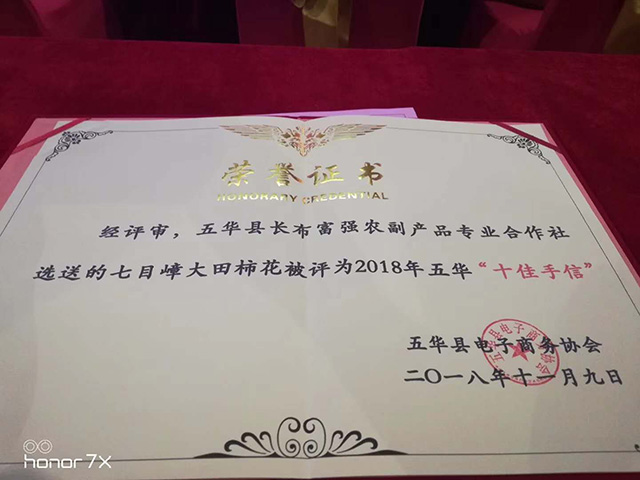 荣誉证书
HONORARY CREDENTIAL
经评审，五华县长布富强农副产品专业合作社
选送的七目嶂大田柿花被评为2018年五华“十佳手信”
五华县电子商务协会
二〇一八年十一月九日
五华县电子商务协会
honor 7X